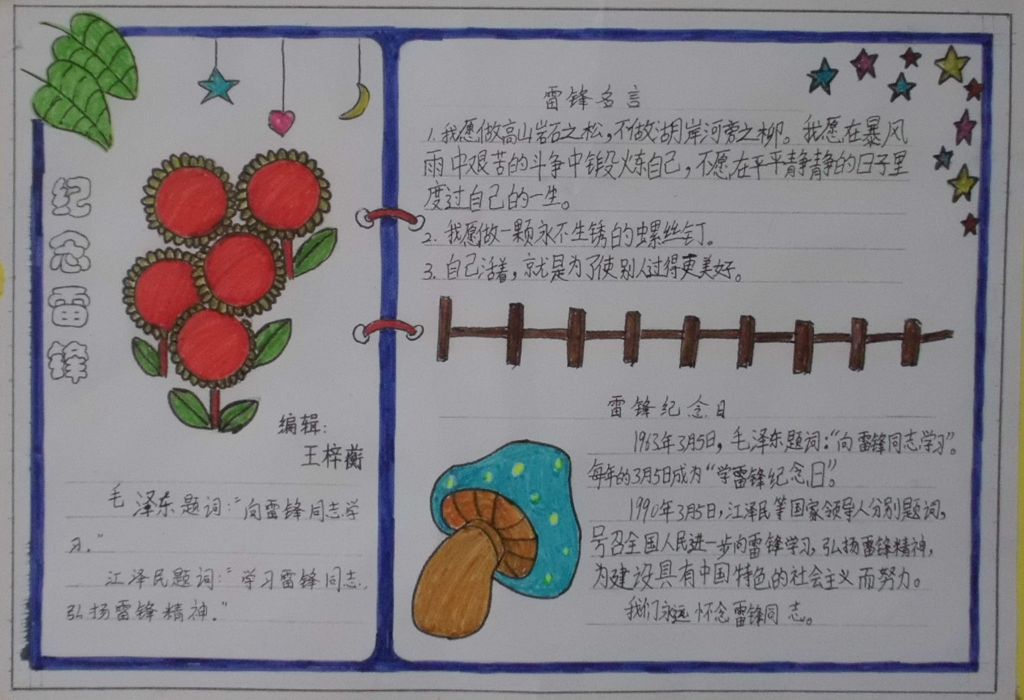 纪念雷锋
编辑:
王梓蘅
毛泽东题词:“向雷锋同志学
习."
江泽民题词:“学习雷锋同志,
弘扬雷锋精神."
雷锋名言
1.我愿做高山岩石之松,不做湖岸河旁之柳。我愿在暴风
雨中艰苦的斗争中锻炼自己,不愿在平平静静的日子里
度过自己的一生。
2.我愿做一颗永不生锈的螺丝钉。
3.自己活着,就是为了使别人过得更美好。
雷锋纪念日
1963年3月5日,毛泽东题词:“向雷锋同志学习”。
每年的3月5日成为“学雷锋纪念日”。
1990年3月5日,江泽民等国家领导人分别题词,
号召全国人民进一步向雷锋学习,弘扬雷锋精神,
为建设具有中国特色的社会主义而努力。
我们永远怀念雷锋同志。